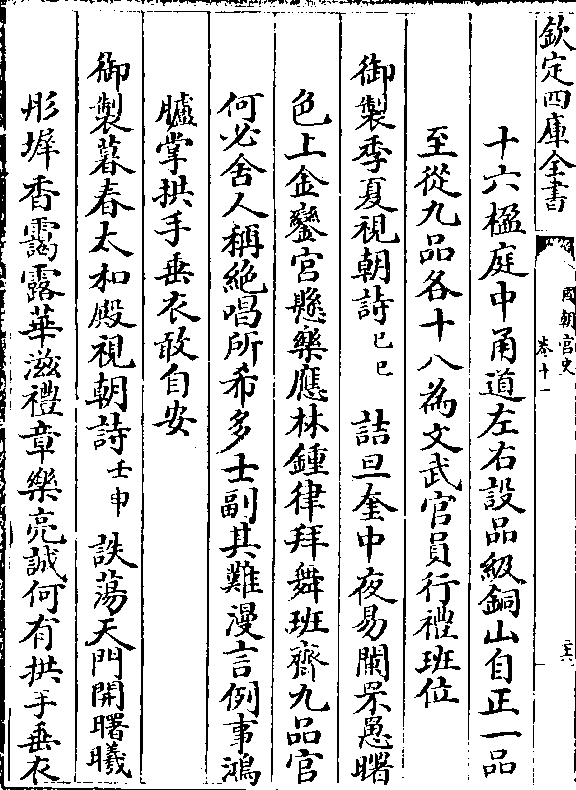 欽定四庫全書
國朝宮史
卷十一
十六楹庭中甬道左右設品級銅山自正一品
至從九品各十八為文武官員行禮班位
御製季夏視朝詩 己巳 詰旦奎中夜易闌罘罳曙
色上金鑾宮懸樂應林鍾律拜舞班齊九品官
何必舍人稱絶唱所希多士副其難漫言例事鴻
臚掌拱手垂衣敢自安
御製暮春太和殿視朝詩 壬申 詄蕩天門開曙曦
彤墀香靄露華滋禮章樂亮誠何有拱手垂衣